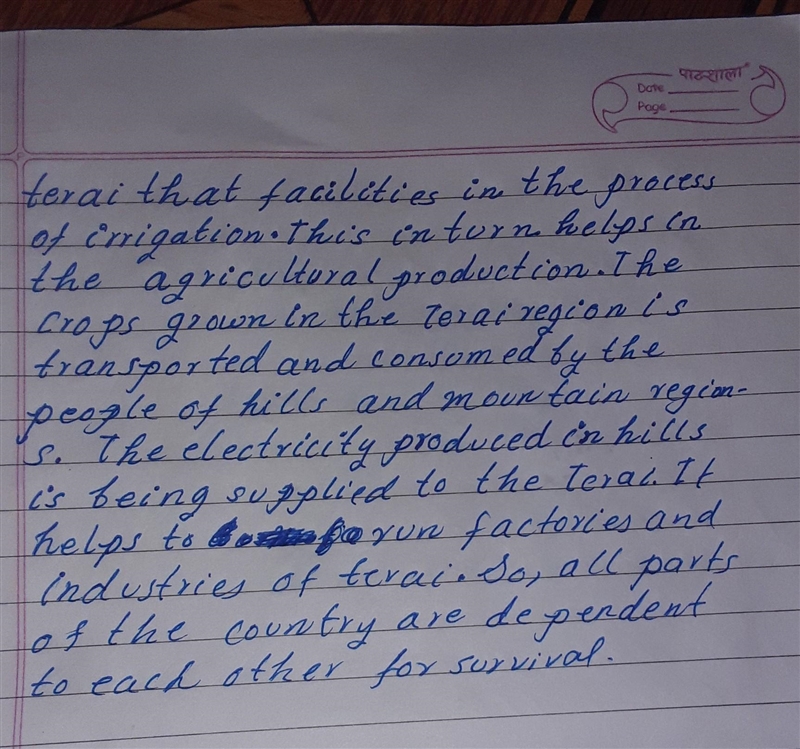 पाठशाला
Date
Page
terai that facilities in the process
of irrigation. This in turn helps in
the agricultural production. The
crops grown in the Terai region is
transported and consumed by the
people of hills and mountain region-
s. The electricity produced in hills
is being supplied to the Terai. It
helps to run factories and
industries of terai. So, all parts
of the country are dependent
to each other for survival.